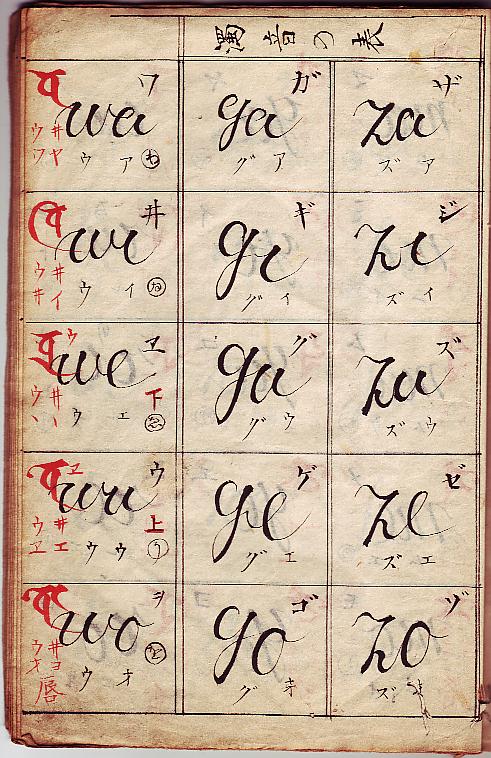 濁音の表
ワ ガ ザ
wa ga za
ウワ ヰヤ ウ ア わ グ ア ズ ア
ヰ ギ ジ
wi gi zi
ウヰ ヰイ ウ イ ゐ グ イ ズ イ
ウ ヱ グ ズ
we gu zu
下
ウ ヰ ウ エ ゑ グ ウ ズ ウ
ヱ ウ ゲ ゼ
wu ge ze
上
ウヱ ヰエ ウ ウ う グ エ ズ エ
ヲ ゴ ゾ
wo go zo
ウオ ヰヨ 唇 ウ オ を グ オ ズ オ